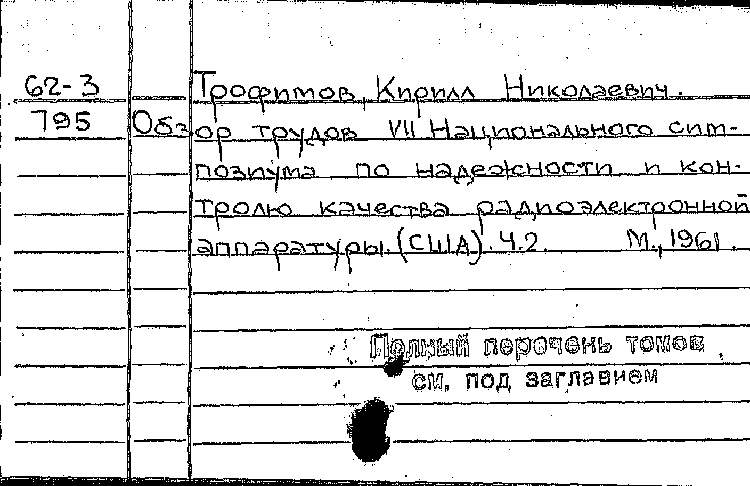 62-3 Трофимов, Кирилл Николаевич.
795 Обзор трудов VII Национального сим-
позиума по надежности и кон-
тролю качества радиоэлектронной
аппаратуры. (США). Ч.2. М., 1961.
Полный перечень томов
см. под заглавием